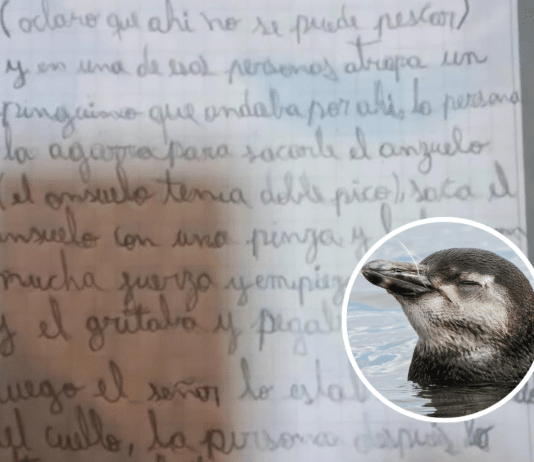 (aclaro que ahi no se puede pescar)
y en una de esas personas atrapa un
pinguino que andaba por ahi, la persona
la agarra para sacarle el anzuelo
(el ansuelo tenia doble pico), saca el
ansuelo con una pinza y
mucha fuerza y
y el gritaba y
luego el señor lo
el cuello, la persona después lo